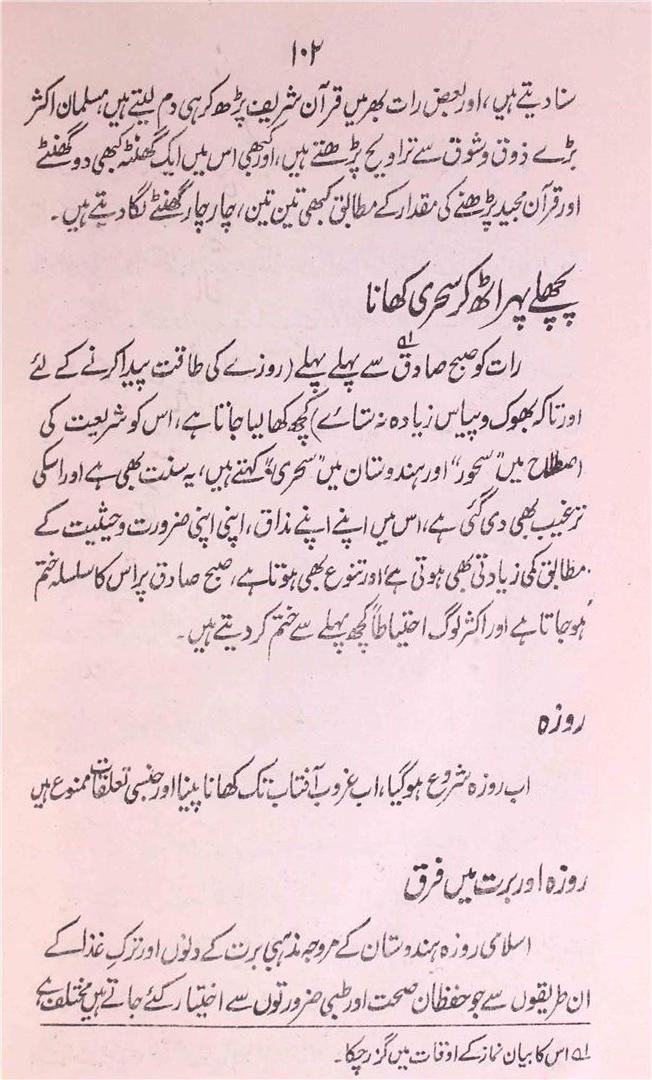 ۱۰۲
سنا دیتے ہیں، اور بعض رات بھر میں قرآن شریف پڑھ کر ہی دم لیتے ہیں، مسلمان اکثر
بڑے ذوق و شوق سے تراویح پڑھتے ہیں، اور کبھی اس میں ایک گھنٹہ کبھی دو گھنٹے
اور قرآن مجید پڑھنے کی مقدار کے مطابق کبھی تین تین، چار چار گھنٹے لگا دیتے ہیں۔
پچھلے پہر اٹھ کر سحری کھانا
رات کو صبح صادق لہ سے پہلے پہلے (روزے کی طاقت پیدا کرنے کے لئے
اور تاکہ بھوک و پیاس زیادہ نہ ستائے) کچھ کھا لیا جاتا ہے، اس کو شریعت کی
اصطلاح میں "سحور" اور ہندوستان میں "سحری" کہتے ہیں، یہ سنت بھی ہے اور اسکی
ترغیب بھی دی گئی ہے، اس میں اپنے اپنے مذاق، اپنی اپنی ضرورت و حیثیت کے
مطابق کمی زیادتی بھی ہوتی ہے اور تنوع بھی ہوتا ہے، صبح صادق پر اس کا سلسلہ ختم
ہو جاتا ہے اور اکثر لوگ احتیاطاً کچھ پہلے سے ختم کر دیتے ہیں۔
روزہ
اب روزہ شروع ہو گیا، اب غروب آفتاب تک کھانا پینا اور جنسی تعلقات ممنوع ہیں
روزہ اور برت میں فرق
اسلامی روزہ ہندوستان کے مروجہ مذہبی برت کے دنوں اور ترکِ غذا کے
ان طریقوں سے جو حفظان صحت اور طبی ضرورتوں سے اختیار کئے جاتے ہیں مختلف ہے
لہ اس کا بیان نماز کے اوقات میں گزر چکا۔